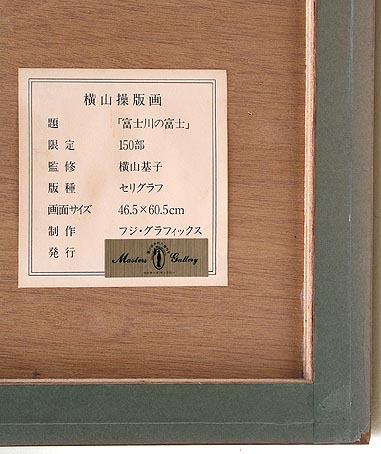 横山操版画
題 「富士川の富士」
限定 150部
監修 横山基子
版種 セリグラフ
画面サイズ 46.5×60.5cm
制作 フジ・グラフィックス
発行
Masters Gallery